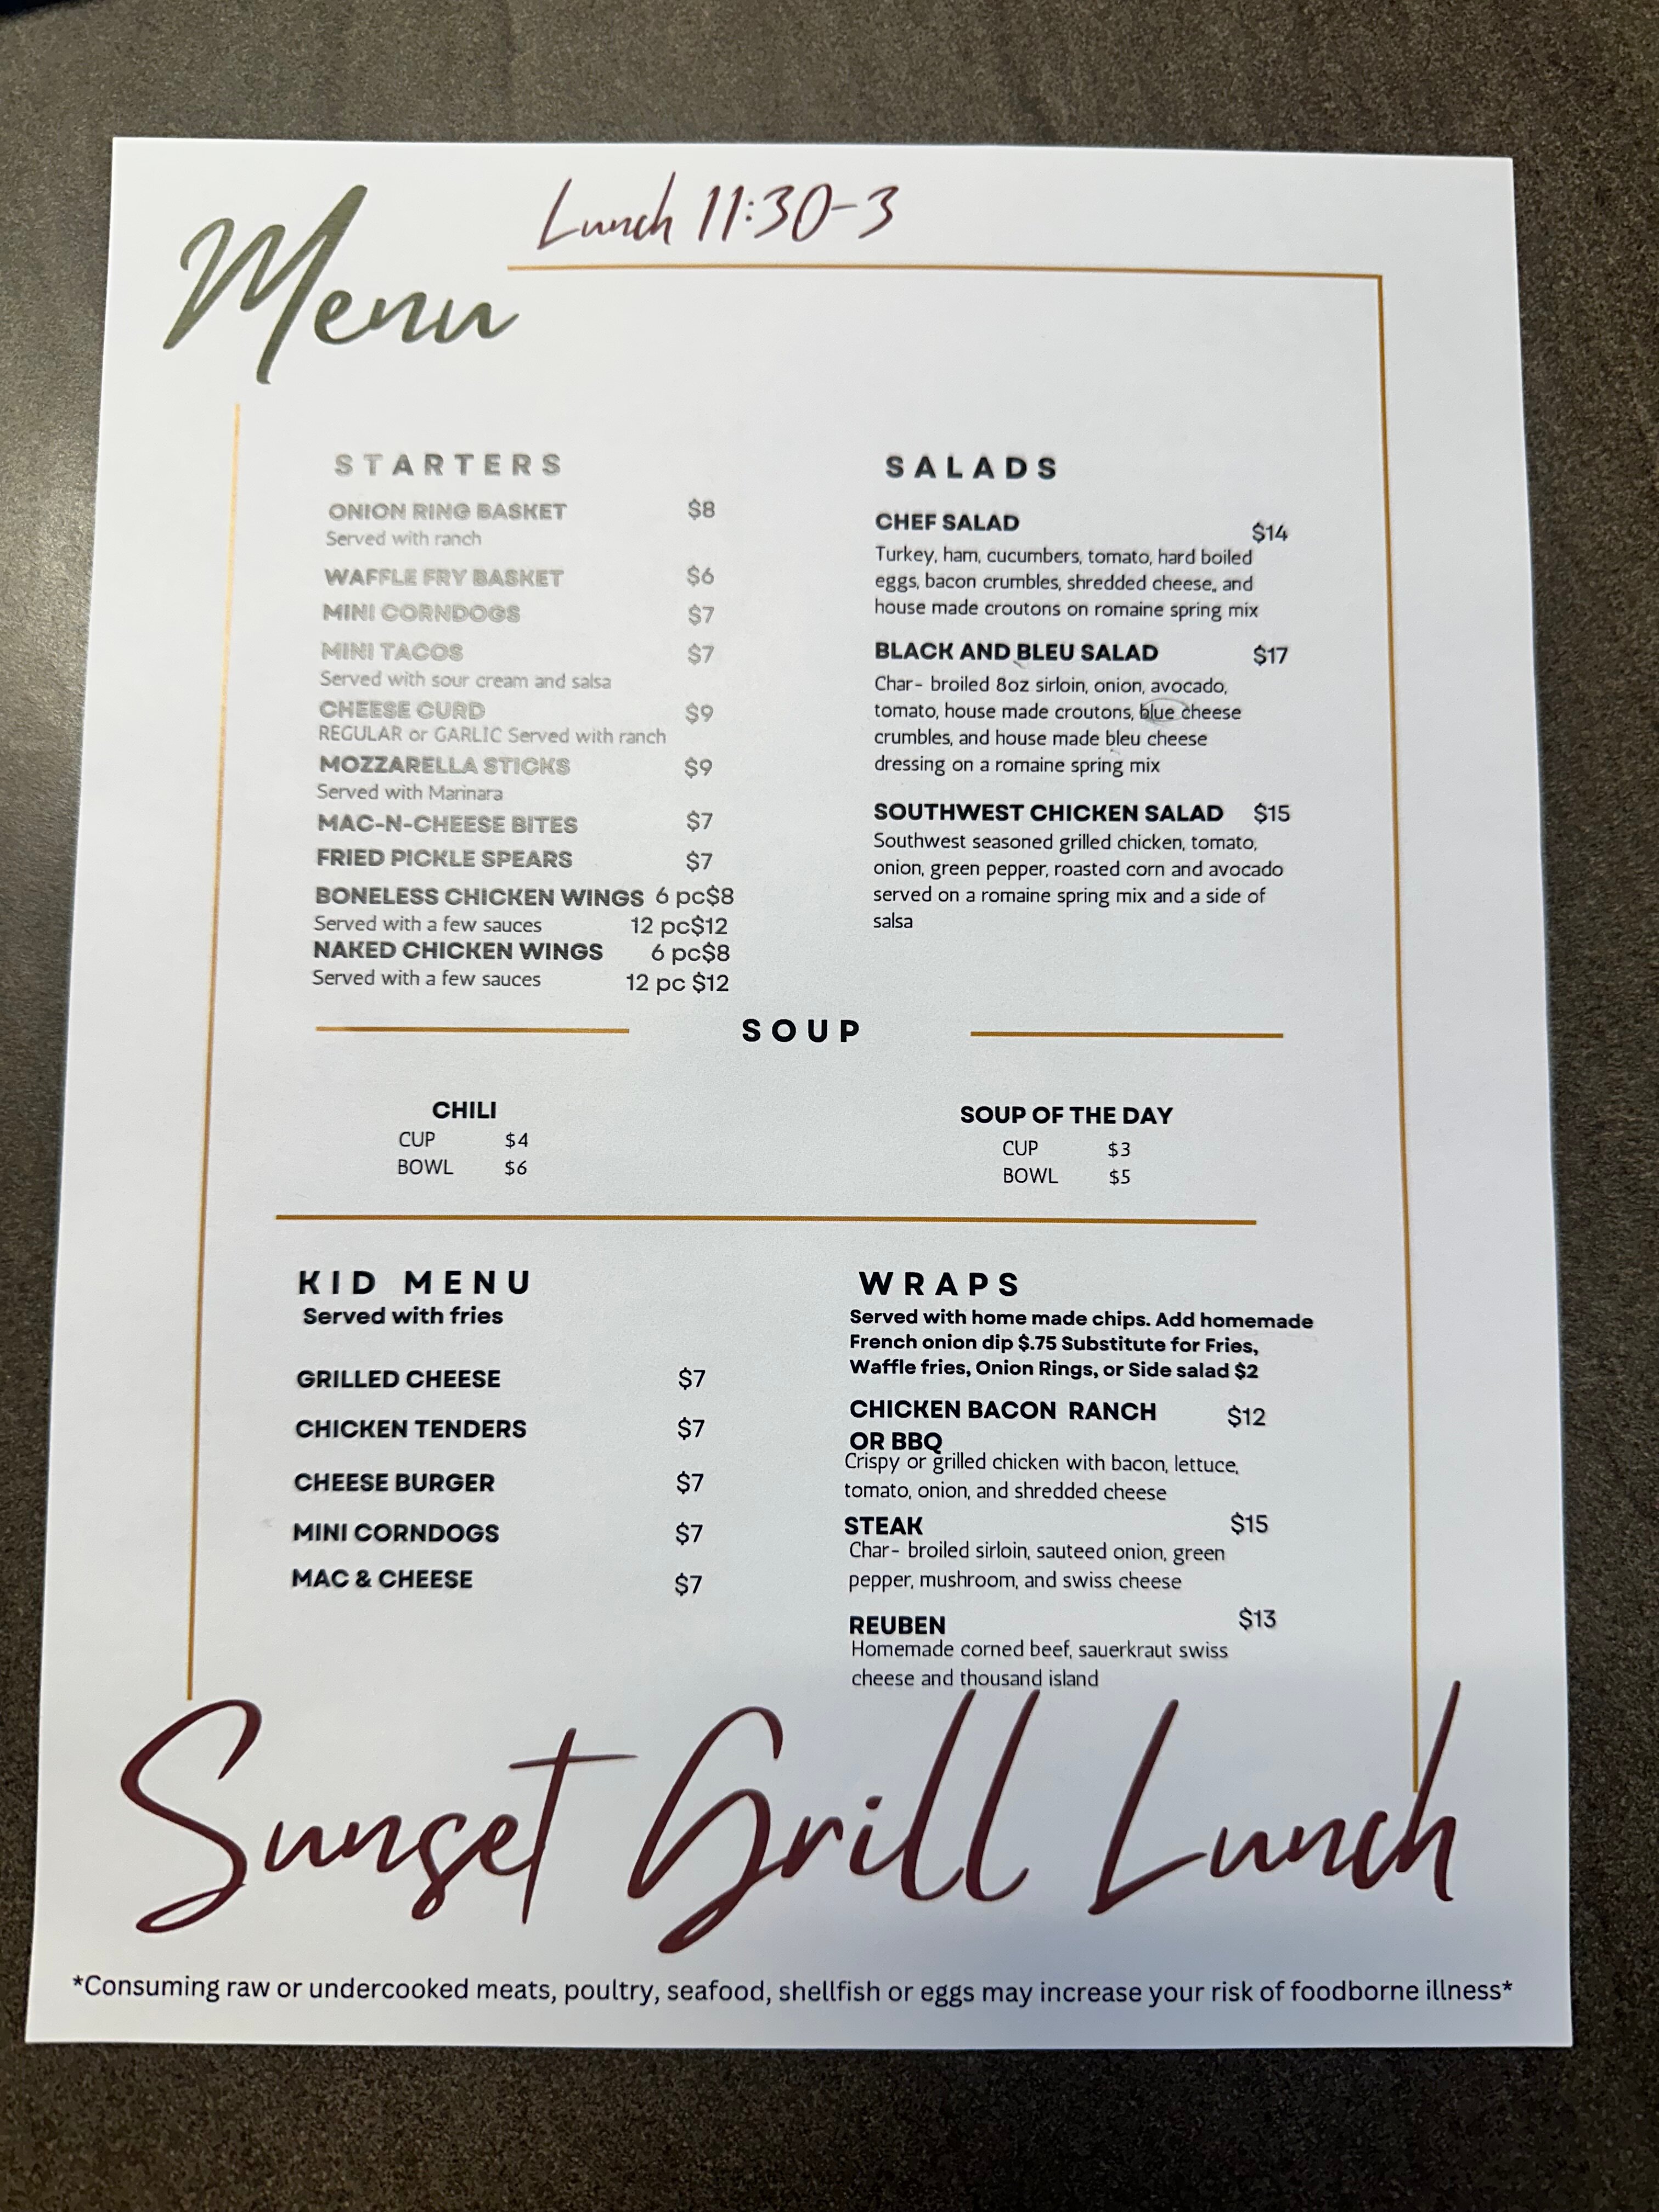 Lunch 11:30-3
Menu
STARTERS
ONION RING BASKET $8
Served with ranch
WAFFLE FRY BASKET $6
MINI CORNDOGS $7
MINI TACOS $7
Served with sour cream and salsa
CHEESE CURD $9
REGULAR or GARLIC Served with ranch
MOZZARELLA STICKS $9
Served with Marinara
MAC-N-CHEESE BITES $7
FRIED PICKLE SPEARS $7
BONELESS CHICKEN WINGS 6 pc$8
Served with a few sauces 12 pc$12
NAKED CHICKEN WINGS 6 pc$8
Served with a few sauces 12 pc $12
SALADS
CHEF SALAD $14
Turkey, ham, cucumbers, tomato, hard boiled
eggs, bacon crumbles, shredded cheese, and
house made croutons on romaine spring mix
BLACK AND BLEU SALAD $17
Char- broiled 8oz sirloin, onion, avocado,
tomato, house made croutons, blue cheese
crumbles, and house made bleu cheese
dressing on a romaine spring mix
SOUTHWEST CHICKEN SALAD $15
Southwest seasoned grilled chicken, tomato,
onion, green pepper, roasted corn and avocado
served on a romaine spring mix and a side of
salsa
SOUP
CHILI
CUP $4
BOWL $6
SOUP OF THE DAY
CUP $3
BOWL $5
KID MENU
Served with fries
GRILLED CHEESE $7
CHICKEN TENDERS $7
CHEESE BURGER $7
MINI CORNDOGS $7
MAC & CHEESE $7
WRAPS
Served with home made chips. Add homemade
French onion dip $.75 Substitute for Fries,
Waffle fries, Onion Rings, or Side salad $2
CHICKEN BACON RANCH $12
OR BBQ
Crispy or grilled chicken with bacon, lettuce,
tomato, onion, and shredded cheese
STEAK $15
Char- broiled sirloin, sauteed onion, green
pepper, mushroom, and swiss cheese
REUBEN $13
Homemade corned beef, sauerkraut swiss
cheese and thousand island
Sunset Grill Lunch
*Consuming raw or undercooked meats, poultry, seafood, shellfish or eggs may increase your risk of foodborne illness*